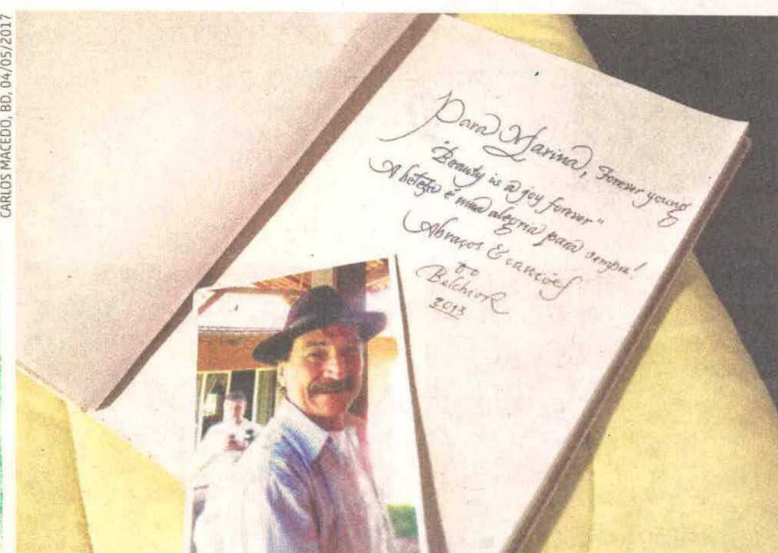 CARLOS MACEDO, BD, 04/05/2017
Para Marina, Forever young
"Beauty is a joy forever"
A beleza é uma alegria para sempre!
Abraços & canções
do
Belchior
2013